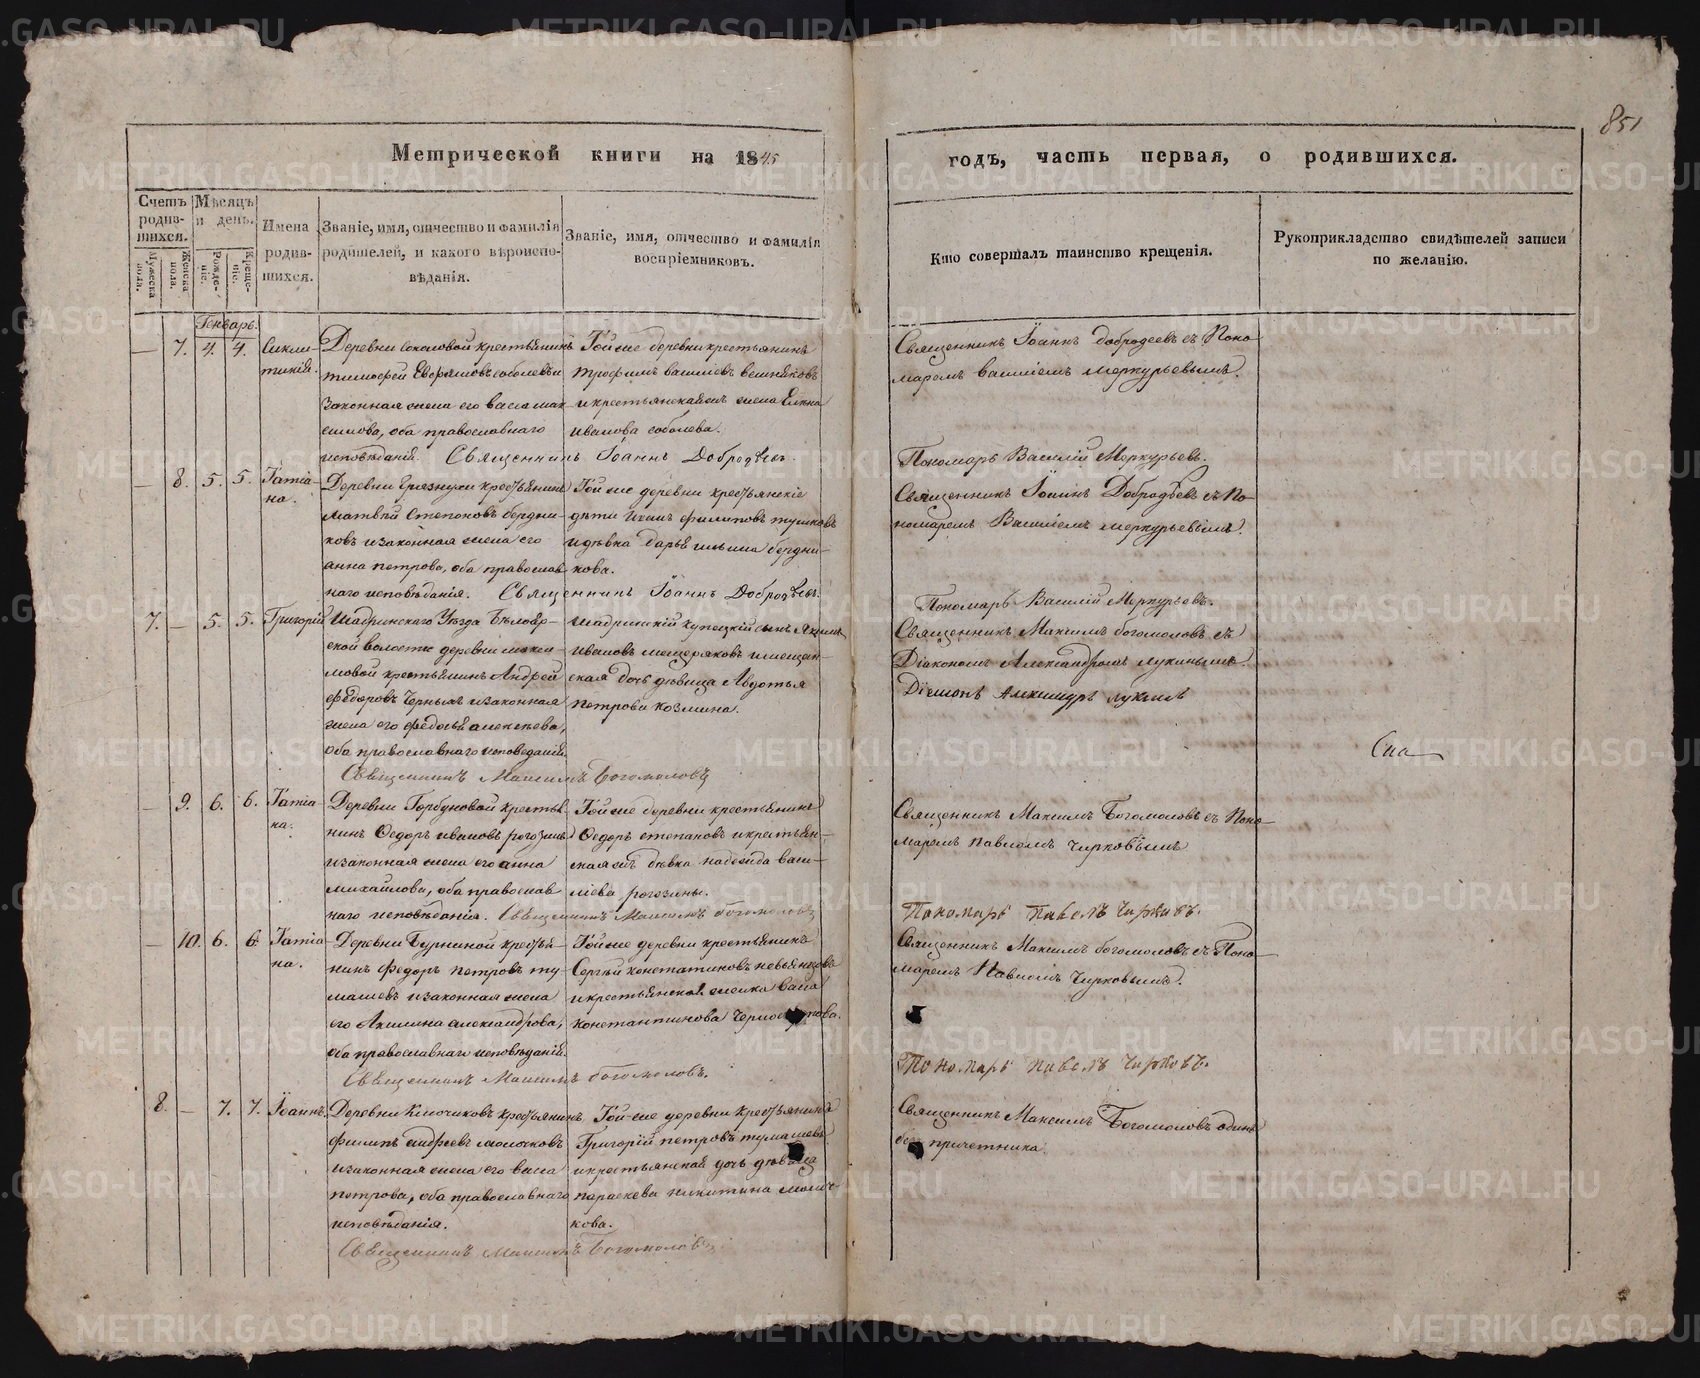 851
Метрической книги на 1845
годъ, часть первая, о родившихся.
Счетъ родив-шихся.
Мужеска пола.
Женска пола.
Мѣсяцъ и день.
Рожде-ніе.
Креще-ніе.
Имена родив-шихся.
Званіе, имя, отчество и фамилія
родителей, и какого вѣроиспо-
вѣданія.
Званіе, имя, отчество и фамилія
воспріемниковъ.
Кто совершалъ таинство крещенія.
Рукоприкладство свидѣтелей записи
по желанію.
Генварь.
— 7. 4. 4.
Сикли-
тикія.
Деревни Соколовой крестьянинъ
тимофей
законная жена его васса мак-
симова, оба православнаго
исповѣданія.
Священникъ Іоаннъ Добродѣевъ.
Той же деревни крестьянинъ
трофимъ васильевъ вешняковъ
и крестьянская жена Елена
иванова соболева.
Священникъ Іоаннъ Добродеевъ съ Поно-
маремъ василіемъ меркурьевымъ.
Пономарь Василій Меркурьевъ.
— 8. 5. 5.
Татіа-
на.
Деревни Грязнухи крестьянинъ
матвѣй Степановъ бердни-
ковъ и законная жена его
анна петрова, оба православ-
наго исповѣданія.
Священникъ Іоаннъ Добродѣевъ.
Той же деревни крестьянскіе
дѣти филиповъ
и дѣвка дарья бердни-
кова.
Священникъ Іоаннъ Добродѣевъ съ По-
номаремъ Василіемъ меркурьевымъ.
Пономарь Василій Меркурьевъ.
7. — 5. 5.
Григорій
Шадринскаго Уѣзда Бѣлояр-
ской волости деревни
крестьянинъ Андрей
федоровъ Черныхъ и законная
жена его федосья алексѣева,
оба православнаго исповеданія.
Священникъ Максимъ Богомоловъ
Шадринскій купецкій сынъ
ивановъ мещеряковъ и мещан-
ская дочь дѣвица Авдотья
петрова козмина.
Священникъ Максимъ богомоловъ съ
Діакономъ Александромъ лукинымъ.
Діаконъ Александръ лукинъ
— 9. 6. 6.
Татіа-
на.
Деревни Горбуновой крестья-
нинъ Ѳедоръ ивановъ рогозинъ
и законная жена его анна
михайлова, оба православ-
наго исповѣданія.
Священникъ Максимъ богомоловъ
Той же деревни крестьянинъ
Ѳедоръ степановъ и крестьян-
ская дѣвка надежда васи-
лiева рогозины.
Священникъ Максимъ Богомоловъ съ Поно-
маремъ павломъ чирковымъ
Пономарь Павелъ Чирковъ.
— 10. 6. 6.
Татіа-
на.
Деревни Бурниной крестья-
нинъ федоръ петровъ ту-
машевъ и законная жена
его Акилина александрова,
оба православнаго исповѣданія.
Священникъ Максимъ богомоловъ.
Той же деревни крестьянинъ
Сергѣй константиновъ невьянцовъ
и крестьянская женка васса
константинова
Священникъ Максимъ богомоловъ съ Поно-
маремъ Павломъ Чирковымъ.
Пономарь павелъ Чирковъ.
8. — 7. 7.
Іоаннъ.
Деревни Ключиковъ крестьянинъ
филипъ андреевъ молочковъ
и законная жена его васса
петрова, оба православнаго
исповѣданія.
Священникъ Максимъ Богомоловъ
Той же деревни крестьянинъ
Григорій петровъ тумашевъ
и крестьянская дочь дѣвица
параскева никитина молоч-
кова.
Священникъ Максимъ Богомоловъ одинъ
безъ причетника.
METRIKI.GASO-URAL.RU